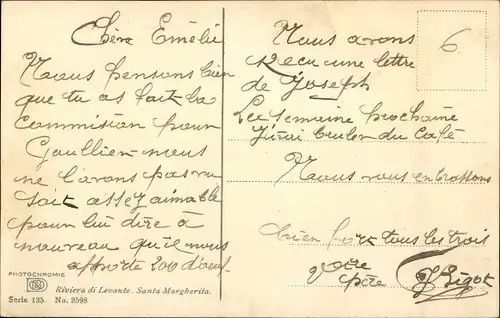 Chère Emélie
Nous pensons bien
que tu as fait la
Commision pour
Gaullien nous
ne l'avons pas vu
soit assez aimable
pour lui dire à
nouveau qu'il nous
apporte 200 d'oeuf
PHOTOCHROMIE
Riviera di Levante. Santa Margherita.
Serie 135. No. 8598
6
Nous avons
recu une lettre
de Joseph
La semaine prochaine
j'irai bruler du café
Nous vous embrassons
bien fort tous les trois
votre
père J Bigot